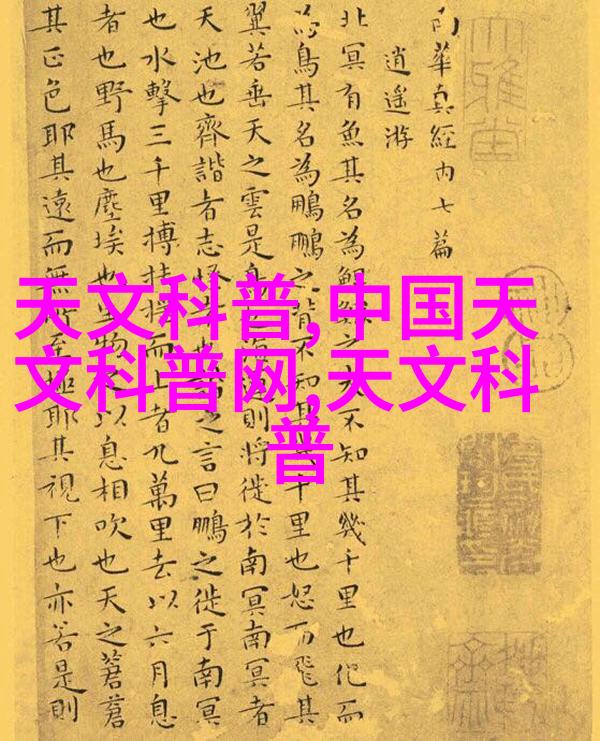 南華真經内七篇
逍遙游
北冥有魚其名為鯤鯤之大不知其幾千里也化而
為鳥其名為鵬鵬之背不知其幾千里也怒而飛其
翼若垂天之雲是鳥也海運則將徙於南冥南冥者
天池也齊諧者志怪者也諧之言曰鵬之徙于南冥
也水擊三千里摶扶搖而上者九萬里去以六月息
者也野馬也塵埃也生物之以息相吹也天之蒼蒼
其正色耶其遠而無所至極耶其視下也亦若是則
天文科普,中国天
文科普网,天文科
普